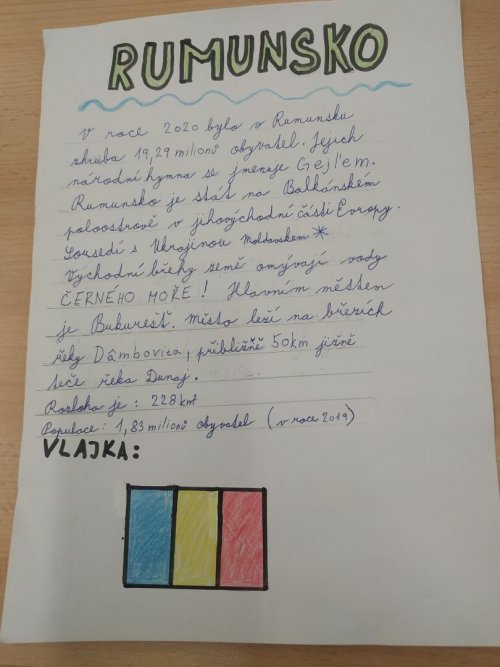 RUMUNSKO
V roce 2020 bylo v Rumunsku
zhruba 19,29 milionů obyvatel. Jejich
národní hymna se jmenuje Gejl'em.
Rumunsko je stát na Balkánském
poloostrově v jihovýchodní části Evropy.
Sousedí s Ukrajinou Moldavskem *
Východní břehy země omývají vody
ČERNÉHO MOŘE! Hlavním městem
je Bukurešť. Město leží na březích
řeky Dâmboviťa, přibližně 50km jižně
teče řeka Dunaj.
Rozloha je: 228 km²
Populace: 1,83 milionů obyvatel (v roce 2019)
VLAJKA: